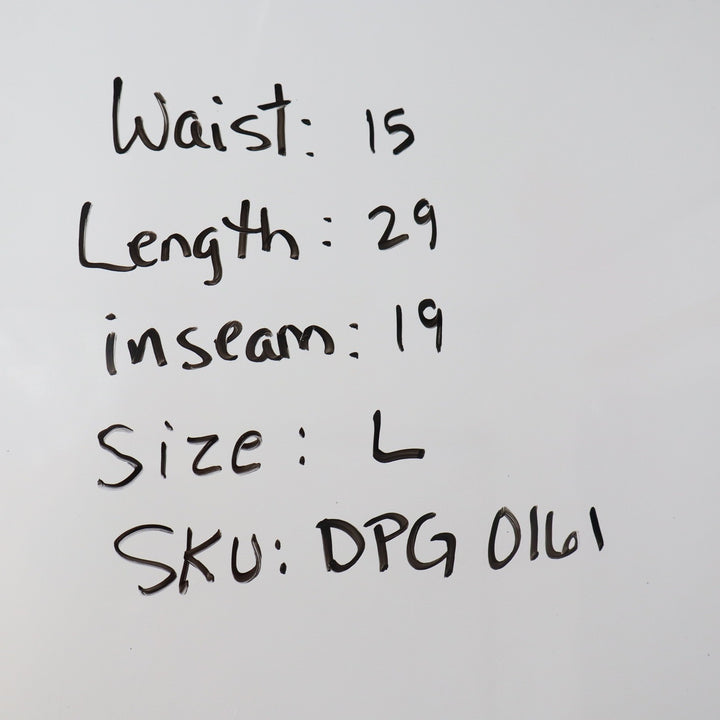 Waist: 15
Length: 29
inseam: 19
Size: L
SKU: DPG 0161